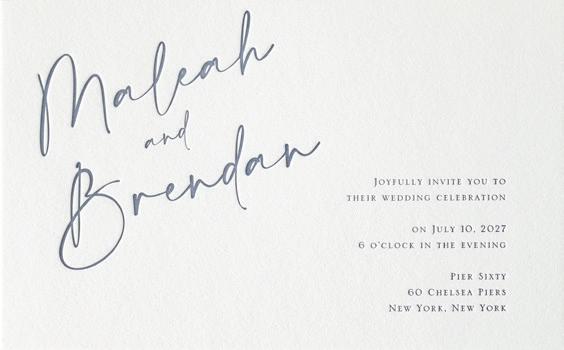 Maleah
and
Brendan
Joyfully invite you to
their wedding celebration
on July 10, 2027
6 o'clock in the evening
Pier Sixty
60 Chelsea Piers
New York, New York